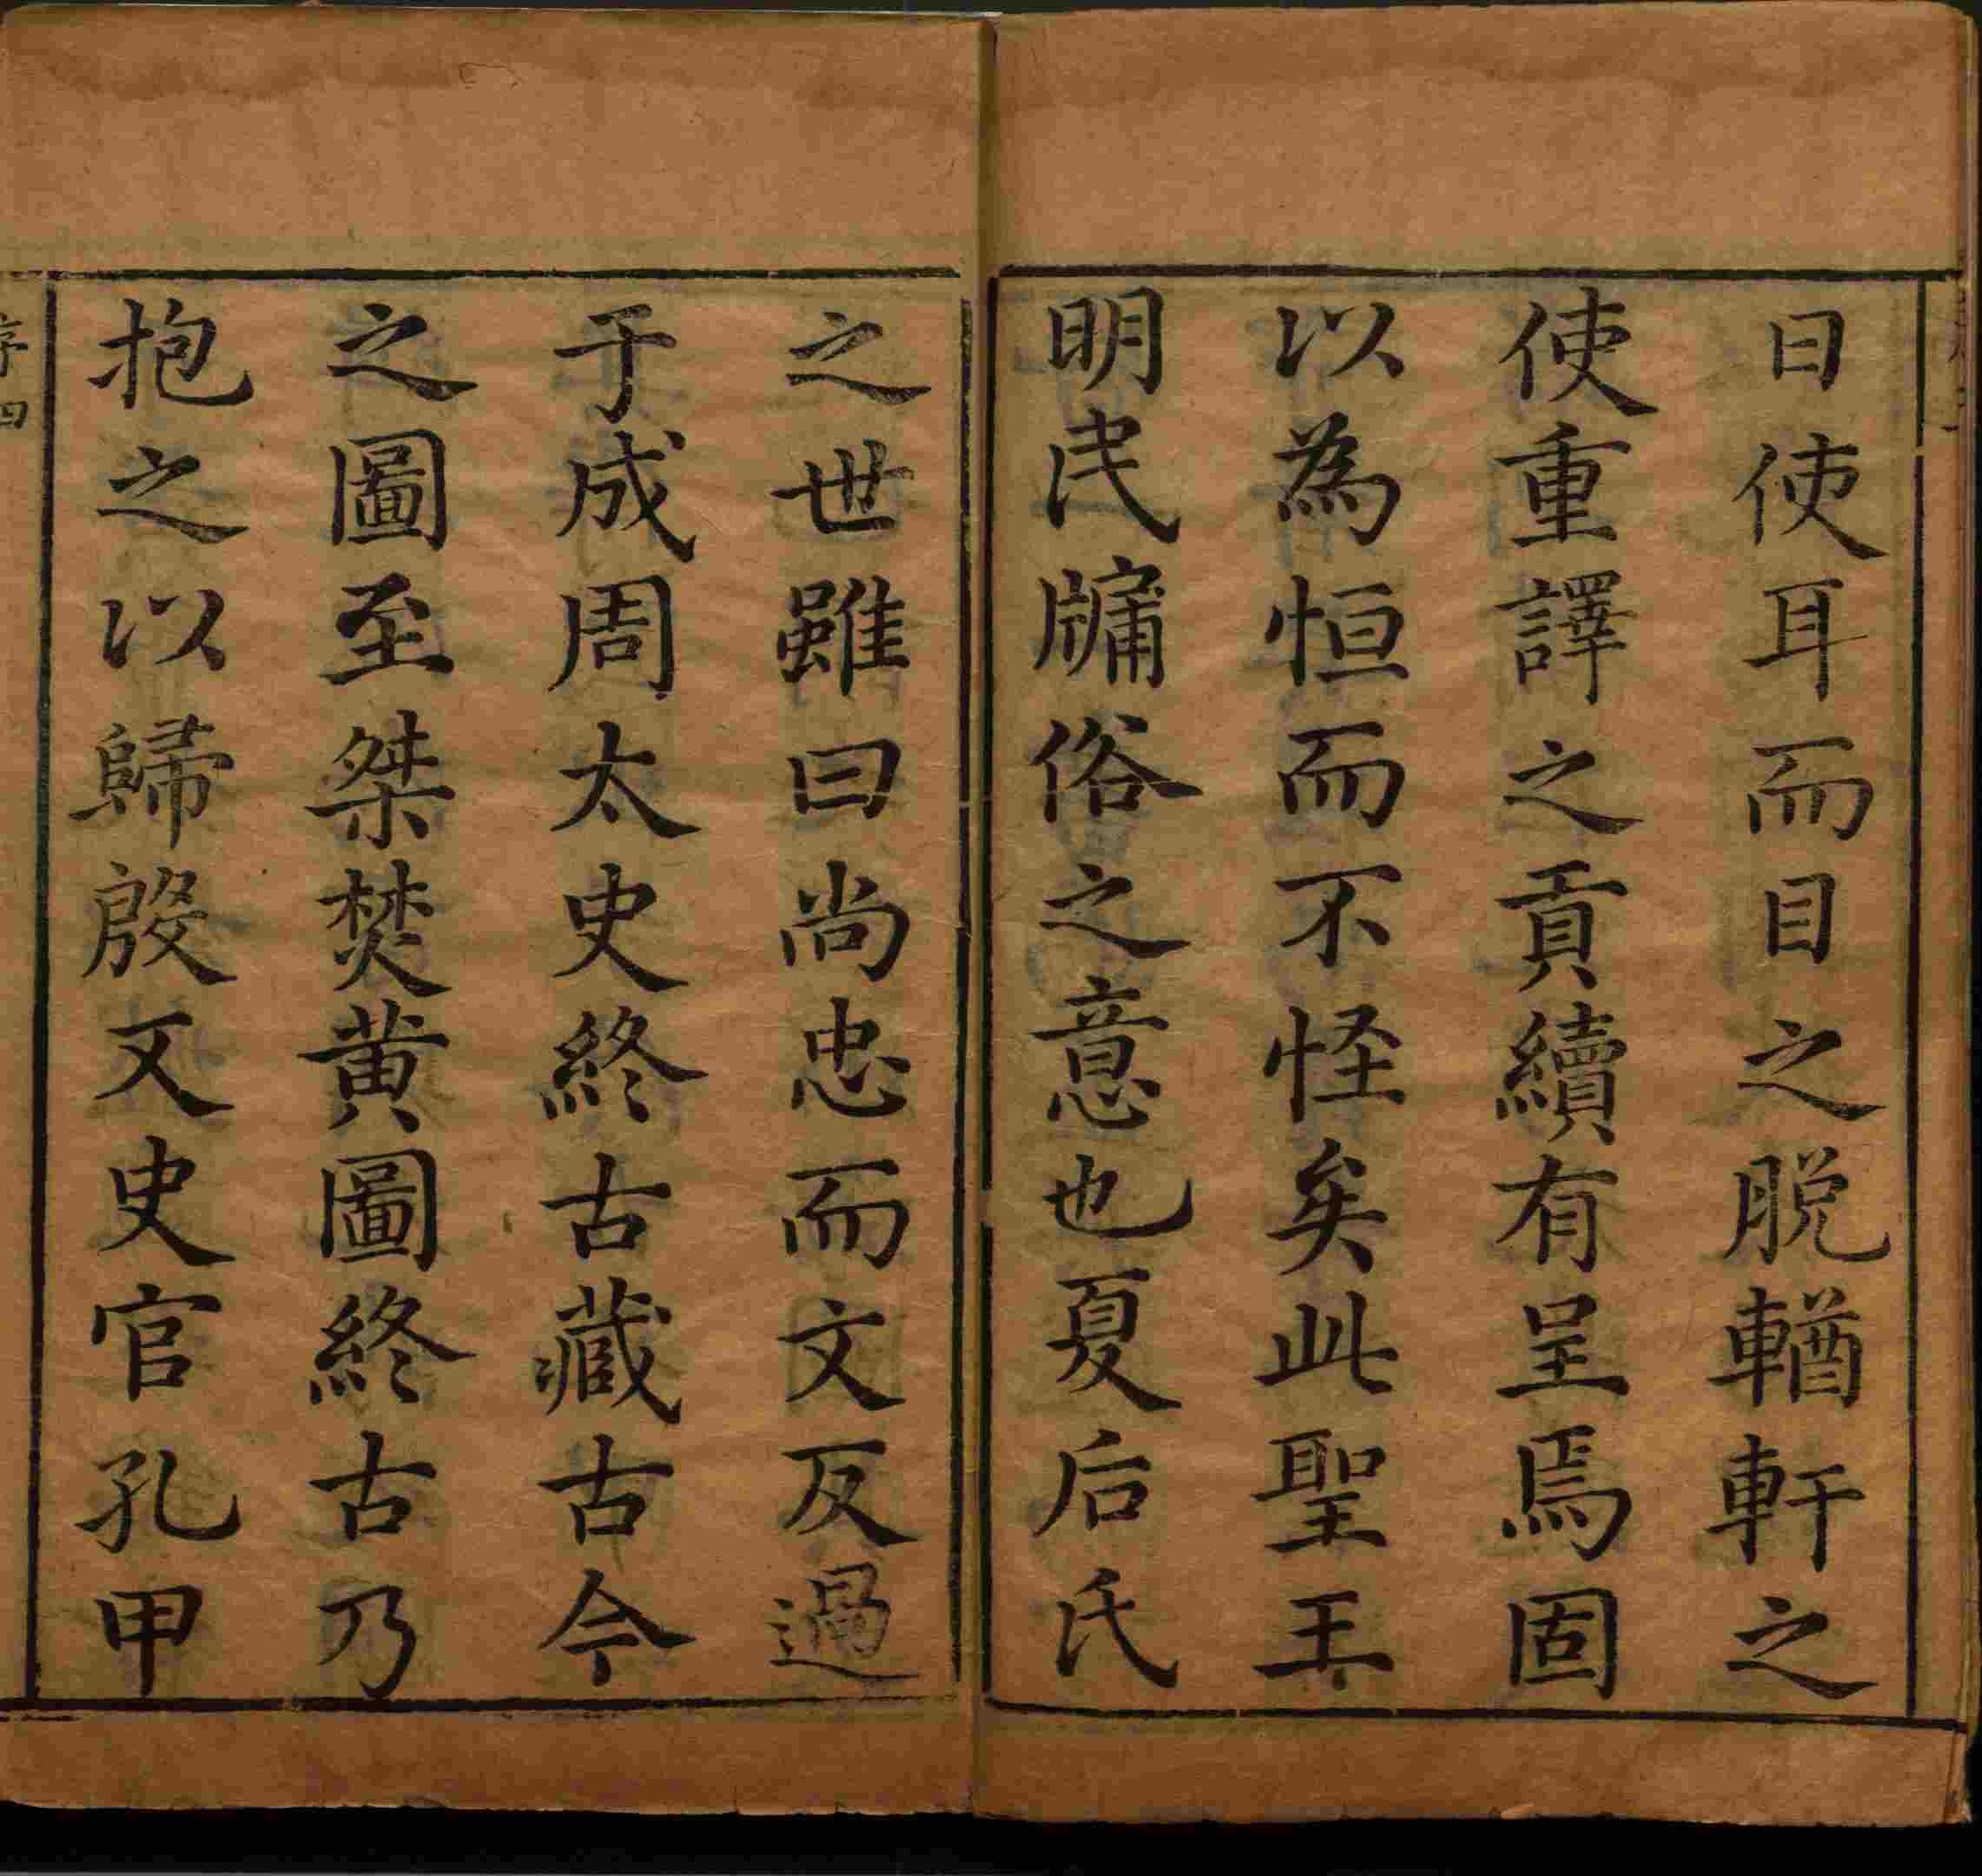 曰使耳而目之脫輶軒之
使重譯之貢續有呈焉固
以為恒而不怪矣此聖王
明民牖俗之意也夏后氏
之世雖曰尚忠而文反過
于成周太史終古藏古今
之圖至桀焚黃圖終古乃
抱之以歸殷又史官孔甲
序四